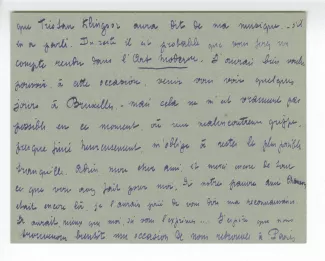 que Tristan Klingsor aura dit de ma musique – s'il
en a parlé. Du reste il est probable que vous ferez un
compte rendu dans l'Art Moderne. J'aurais bien voulu
pouvoir à cette occasion, venir vous voir quelques
jours à Bruxelles – mais cela ne m'est vraiment pas
possible en ce moment, où une malencontreuse grippe,
presque finie heureusement m'oblige à rester le plus possible
tranquille. Adieu mon cher ami, et merci encore de tout
ce que vous avez fait pour moi. Si notre pauvre ami
était encore là, je l'aurais prié de vous dire ma reconnaissance.
Il aurait mieux que moi, su vous l'exprimer... J'espère que nous
trouverons bientôt une occasion de nous retrouver à Paris,